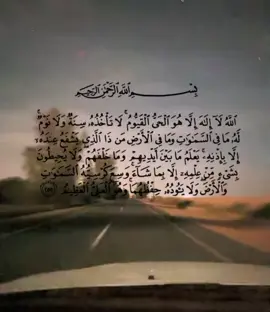 بِسْمِ اللَّهِ الرَّحْمَٰنِ الرَّحِيمِ
اللَّهُ لَا إِلَٰهَ إِلَّا هُوَ الْحَيُّ الْقَيُّومُ ۚ لَا تَأْخُذُهُ سِنَةٌ وَلَا نَوْمٌ ۚ
لَّهُ مَا فِي السَّمَاوَاتِ وَمَا فِي الْأَرْضِ ۗ مَن ذَا الَّذِي يَشْفَعُ عِندَهُ
إِلَّا بِإِذْنِهِ ۚ يَعْلَمُ مَا بَيْنَ أَيْدِيهِمْ وَمَا خَلْفَهُمْ ۖ وَلَا يُحِيطُونَ
بِشَيْءٍ مِّنْ عِلْمِهِ إِلَّا بِمَا شَاءَ ۚ وَسِعَ كُرْسِيُّهُ السَّمَاوَاتِ
وَالْأَرْضَ ۖ وَلَا يَئُودُهُ حِفْظُهُمَا ۚ وَهُوَ الْعَلِيُّ الْعَظِيمُ ﴿٢٥٥﴾